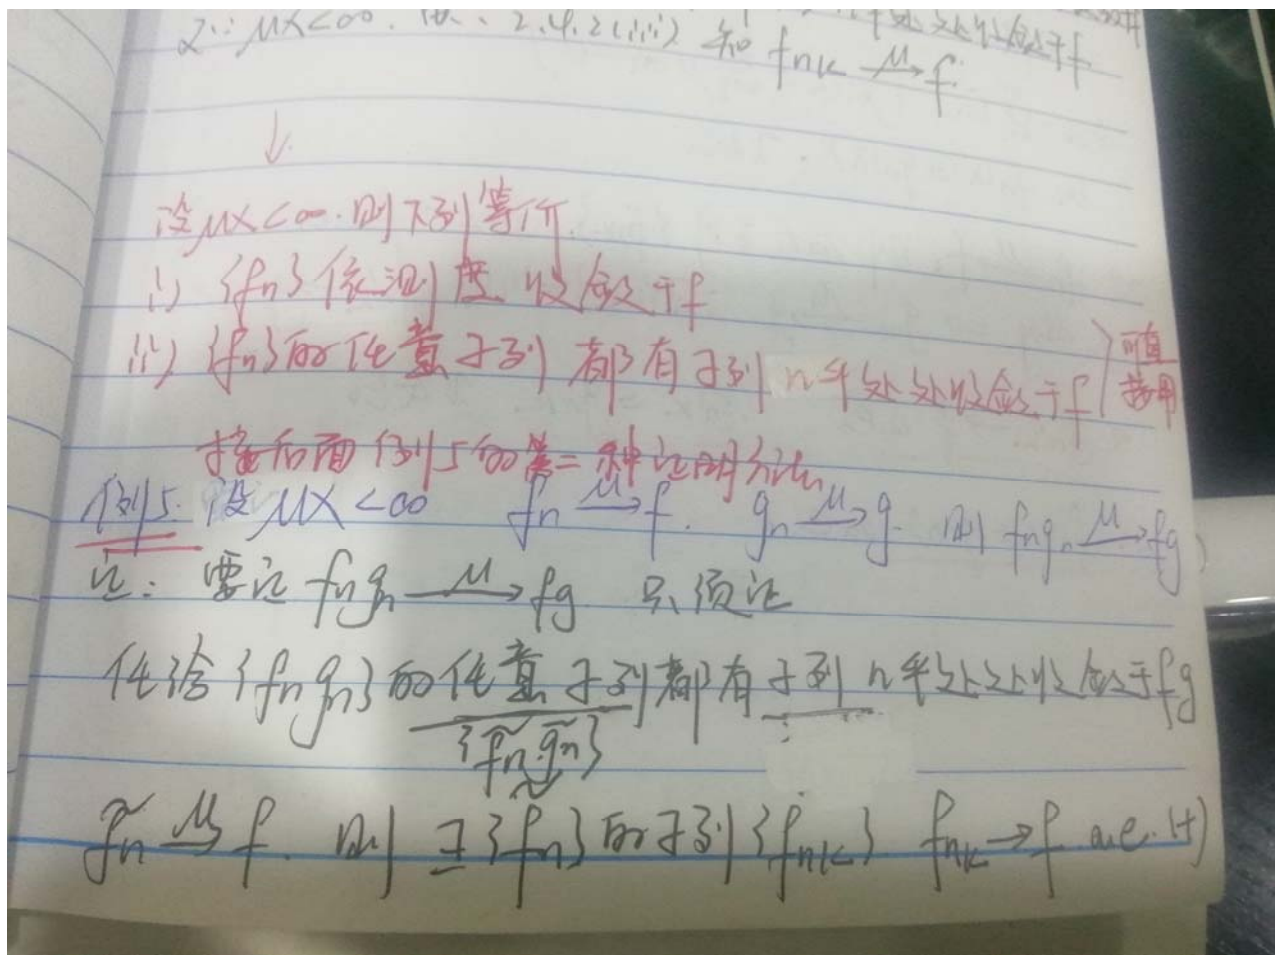 2∵ μX<∞. 2.4.2(iii) 知 fnk —μ→ f
↓
设μX<∞.则下列等价.
i) {fn}依测度收敛于f
ii) {fn}的任意子列都有子列几乎处处收敛于f
可直
接用
接后面例5的第二种证明方法
例5. 设μX<∞ fn —μ→ f. gn —μ→ g. 则 fngn —μ→ fg
证: 要证 fngn —μ→ fg 只须证
任给{fngn}的任意子列都有子列几乎处处收敛于fg
{f̃ng̃n}
f̃n —μ→ f. 则∃{fn}的子列{fnk} fnk→f a.e.